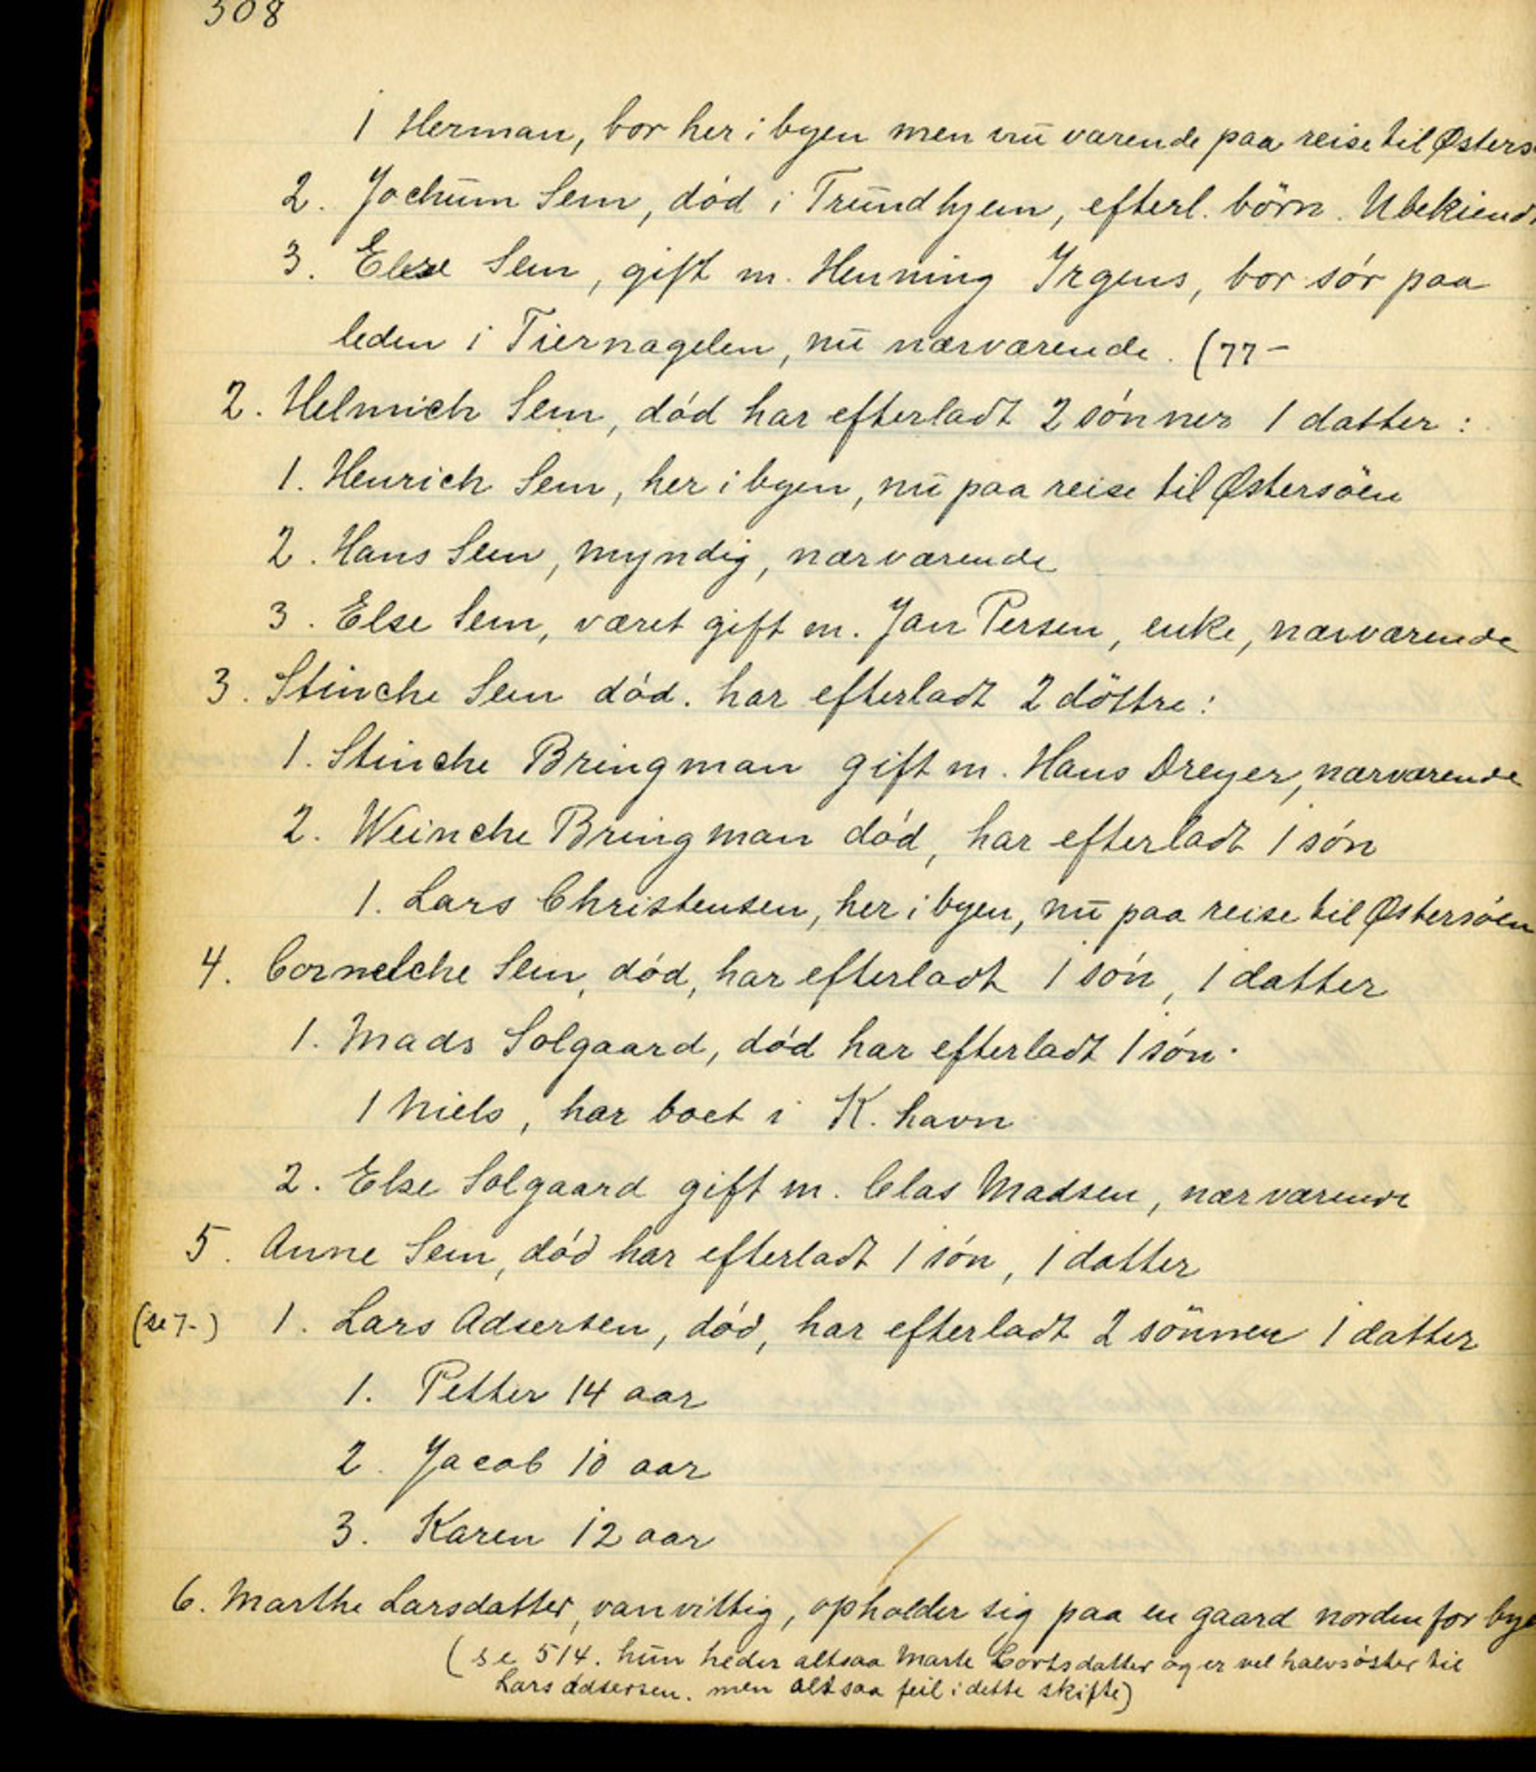 508
1 Herman, bor her i byen men nu værende paa reise til Østers
2. Jochum Sem, död i Trundhjem, efterl. börn. Ubekiendt
3. Else Sem, gift m. Henning Irgens, bor sör paa
leden i Tiernagelen, nu nærværende. (77-
2. Helmich Sem, död har efterladt 2 sönner 1 datter:
1. Henrich Sem, her i byen, nu paa reise til Østersöen
2. Hans Sem, myndig, nærværende
3. Else Sem, været gift m. Jan Persen, enke, nærværende
3. Stinche Sem död. har efterladt 2 döttre:
1. Stinche Bringman gift m. Hans Dreyer, nærværende
2. Weinche Bringman död, har efterladt 1 sön
1. Lars Christensen, her i byen, nu paa reise til Østersöen
4. Cornelche Sem, död, har efterladt 1 sön, 1 datter
1. Mads Solgaard, död har efterladt 1 sön.
1 Niels, har boet i K.havn
2. Else Solgaard gift m. Clas Madsen, nærværende
5. Anne Sem, död har efterladt 1 sön, 1 datter
(se 7-) 1. Lars Adsersen, död, har efterladt 2 sönner 1 datter
1. Petter 14 aar
2. Jacob 10 aar
3. Karen 12 aar
6. Marthe Larsdatter, vanvittig, opholder sig paa en gaard nordenfor bye
(se 514. hun heder altsaa Marte Cortsdatter og er vel halvsöster til
Lars Adsersen. men altsaa feil i dette skifte)